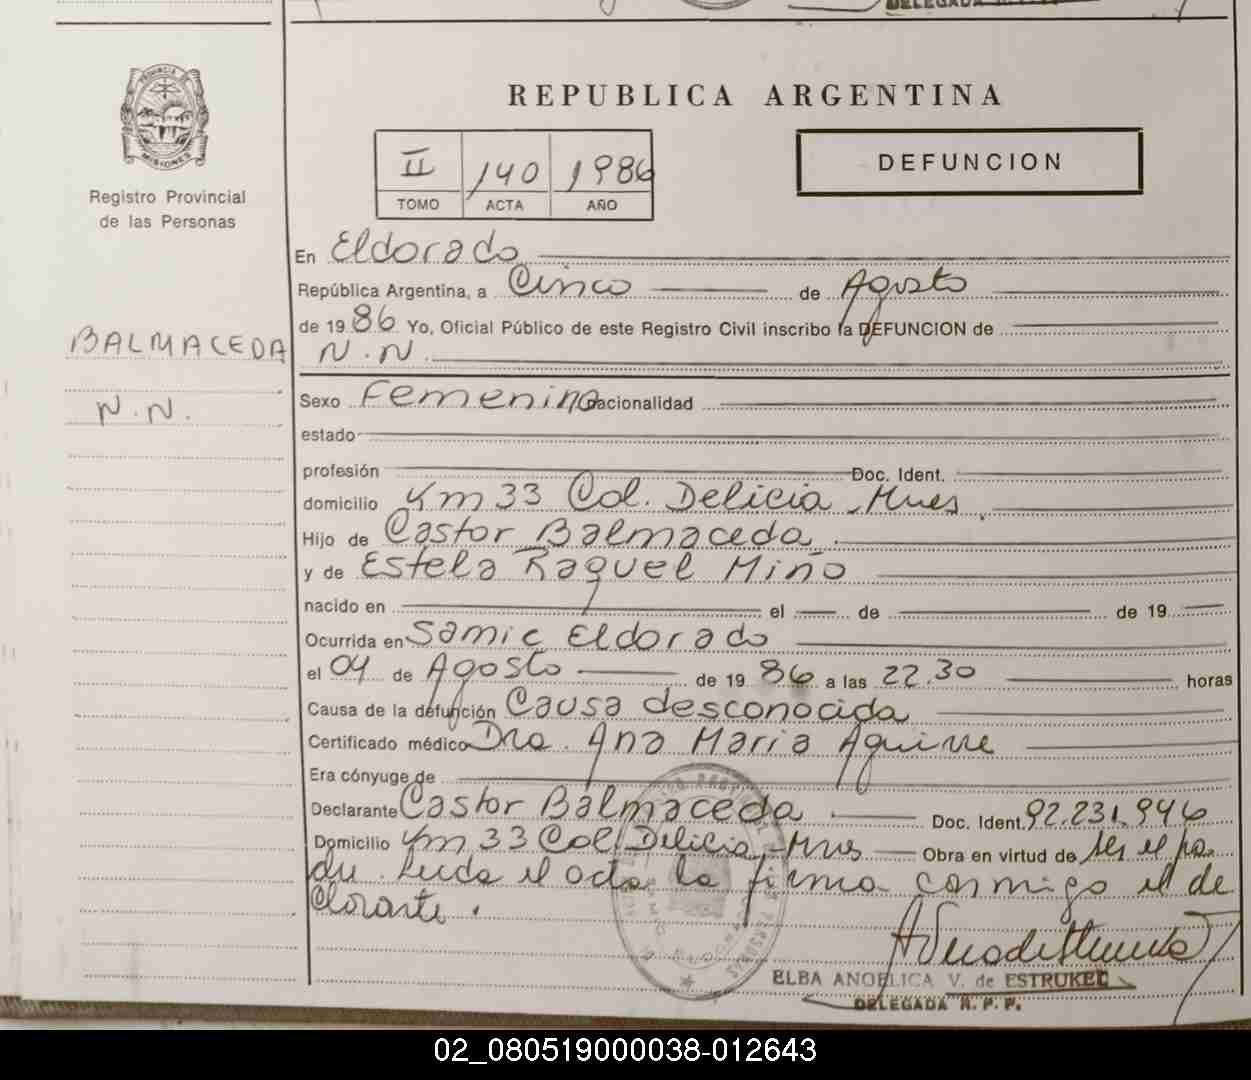 DELEGADA R. P. P.
PROVINCIA DE MISIONES
Registro Provincial
de las Personas
BALMACEDA
N.N.
REPUBLICA ARGENTINA
II 140 1986
TOMO ACTA AÑO
DEFUNCION
En Eldorado
República Argentina, a Cinco de Agosto
de 1986 Yo, Oficial Público de este Registro Civil inscribo la DEFUNCION de
N.N.
Sexo Femenino nacionalidad
estado
profesión Doc. Ident.
domicilio Km 33 Col. Delicia - Mnes.
Hijo de Castor Balmaceda
y de Estela Raquel Miño
nacido en el de de 19
Ocurrida en Samic Eldorado
el 04 de Agosto de 1986 a las 22.30 horas
Causa de la defunción Causa desconocida
Certificado médico Dra. Ana Maria Aguirre
Era cónyuge de
Declarante Castor Balmaceda Doc. Ident. 92.231.946
Domicilio Km 33 Col. Delicia - Mnes Obra en virtud de ser el pa
dre. Leida el acta la firma conmigo el de
clarante.
ELBA ANGELICA V. de ESTRUKEL
DELEGADA R. P. P.
02_080519000038-012643